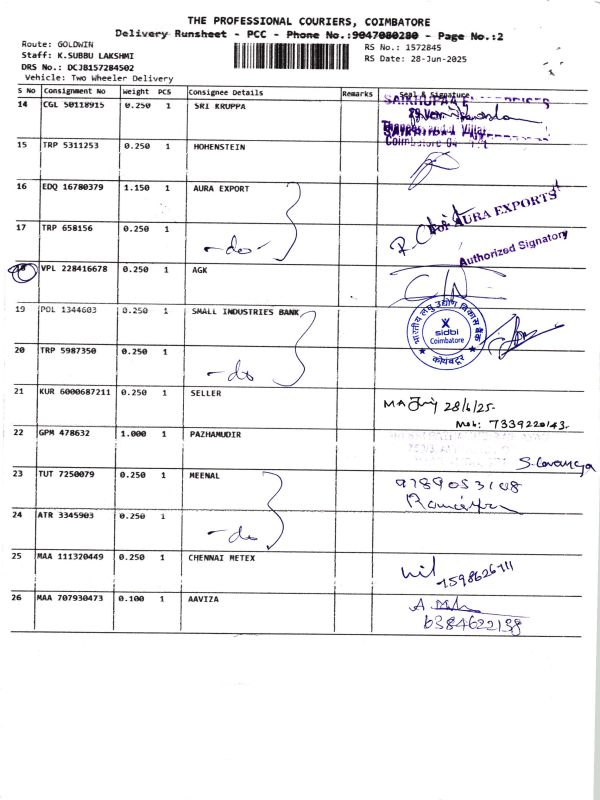 THE PROFESSIONAL COURIERS, COIMBATORE
Delivery Runsheet - PCC - Phone No.:9047080280 - Page No.:2
Route: GOLDWIN
Staff: K.SUBBU LAKSHMI
DRS No.: DCJB157284502
Vehicle: Two Wheeler Delivery
RS No.: 1572845
RS Date: 28-Jun-2025
S No Consignment No Weight PCS Consignee Details Remarks Seal & Signature
14 CGL 50118915 0.250 1 SRI KRUPPA
15 TRP 5311253 0.250 1 HOHENSTEIN
16 EDQ 16780379 1.150 1 AURA EXPORT
For AURA EXPORTS
17 TRP 658156 0.250 1 -do-
Authorized Signatory
18 VPL 228416678 0.250 1 AGK
19 POL 1344603 0.250 1 SMALL INDUSTRIES BANK
भारतीय लघु उद्योग विकास बैंक
sidbi
Coimbatore
कोयंबटूर
20 TRP 5987350 0.250 1 -do
21 KUR 6000687211 0.250 1 SELLER 28/6/25-
Mob: 7339220143.
22 GPM 478632 1.000 1 PAZHAMUDIR
23 TUT 7250079 0.250 1 MEENAL 9789053108
24 ATR 3345903 0.250 1 -do
25 MAA 111320449 0.250 1 CHENNAI METEX
26 MAA 707930473 0.100 1 AAVIZA
6384622198